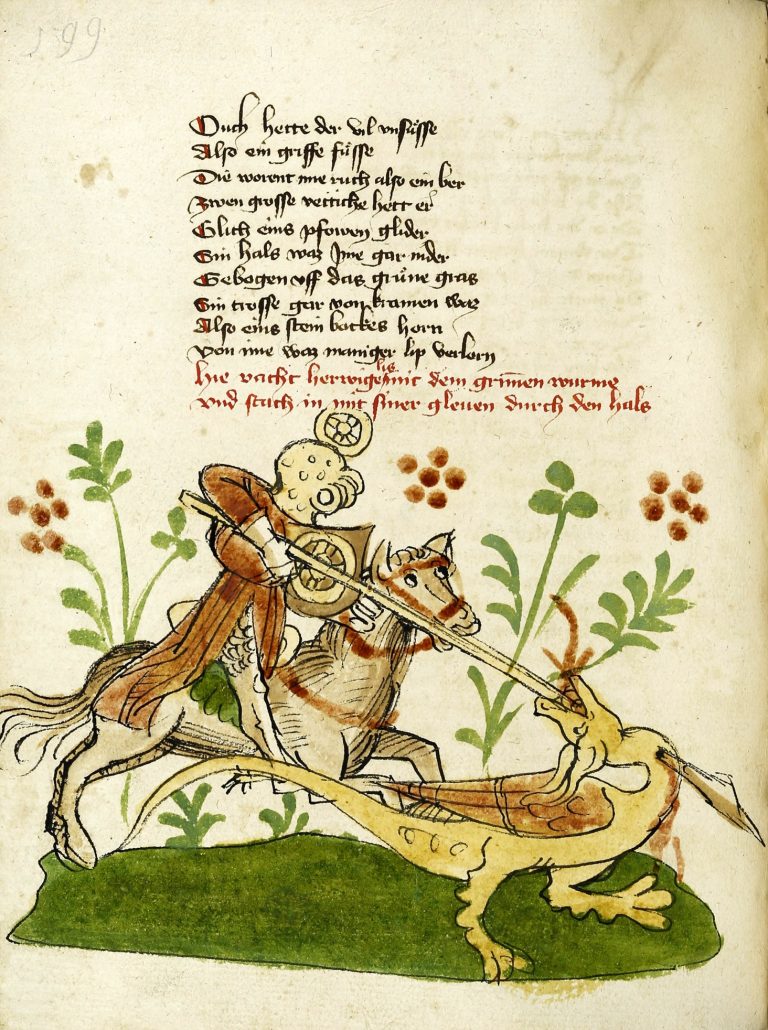 199
Ouch hette der vil vnsůsse
Also ein griffe fůsse
Die worent ime ruch also ein ber
Zwen grosse vettiche hett er
Glich eins pfowen glider
Sin hals waz Ime gar nider
Gebogen vff das grůne gras
Sin trosse gar von kramen waz
Also eins stein bockes horn
Von ime waz maniger lip verlorn
hie vacht herwigelis mit dem grimen wurme
vnd stach in mit siner gleuen durch den hals